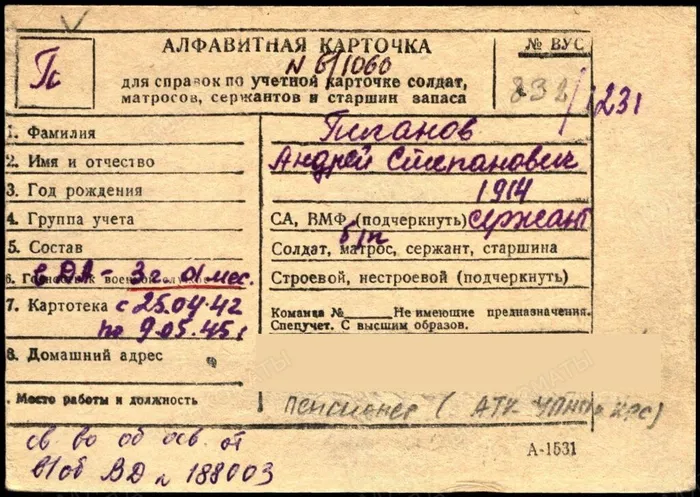 Пг
АЛФАВИТНАЯ КАРТОЧКА
N б/1060
для справок по учетной карточке солдат,
матросов, сержантов и старшин запаса
№ ВУС
832/1231
1. Фамилия Пиганов
2. Имя и отчество Андрей Степанович
3. Год рождения 1914
4. Группа учета СА, ВМФ (подчеркнуть) сержант
б/п
5. Состав Солдат, матрос, сержант, старшина
6. Годность к военной службе Строевой, нестроевой (подчеркнуть)
в ДА - 3г. 01 мес.
7. Картотека Команда №_____ Не имеющие предназначения.
Спецучет. С высшим образов.
с 25.04.42
по 9.05.45г
8. Домашний адрес
Место работы и должность пенсионер (АТК
св. во об осв. от
в/об ВД № 188003
А-1531